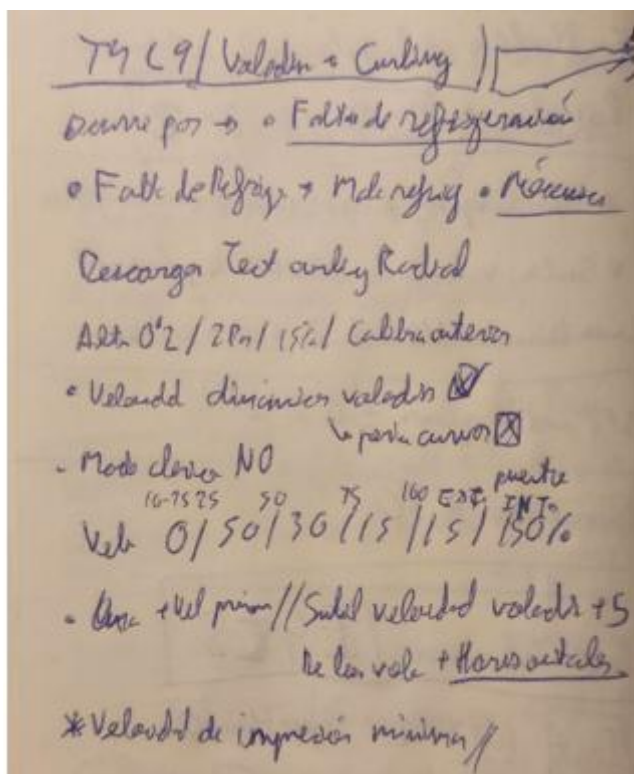 T4 C9 / Voladizo + Curling
Ocurre por → • Falta de refrigeración
• Falta de Refrig → Mala refrig •
Descargar Test curling Radial
Alta 0'2 / 2 Per / 15% / Calibra anterior
• Velocidad dinámica voladizo
↳ para curvas
• Modo clásico NO
10-25 25 50 75 100 EXT. puente INT.
Velo 0 / 50 / 30 / 15 / 15 / 150%
• + Vel // Subid velocidad voladizo + 5
De los vola + Horizontales
* Velocidad de impresión mínima //